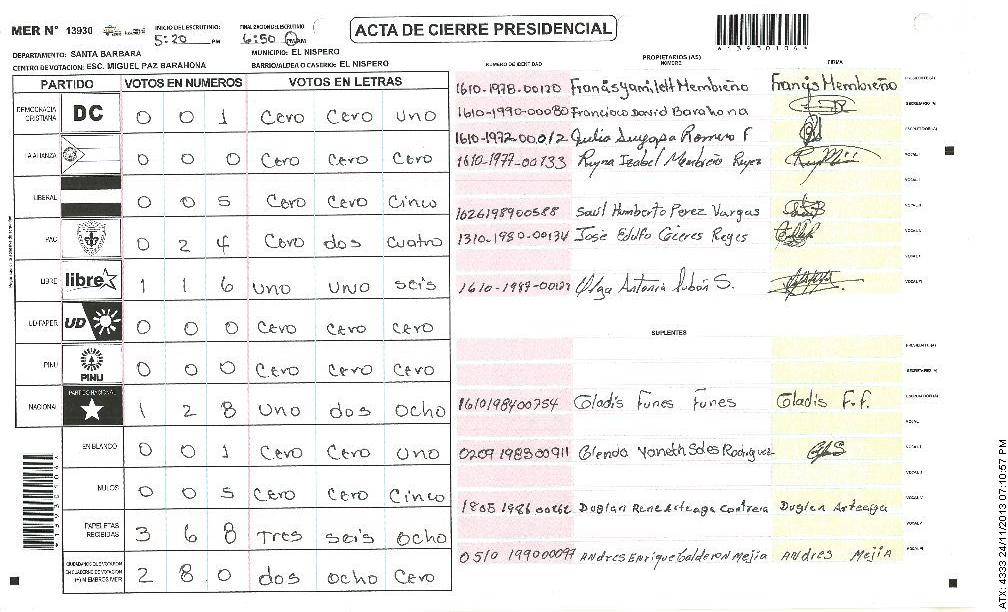 MER N° 13930 INICIO DEL ESCRUTINIO: 5:20 PM FINALIZACION DEL ESCRUTINIO: 6:50 PM ACTA DE CIERRE PRESIDENCIAL
DEPARTAMENTO: SANTA BARBARA MUNICIPIO: EL NISPERO
CENTRO DE VOTACION: ESC. MIGUEL PAZ BARAHONA BARRIO/ALDEA O CASERIO: EL NISPERO
PARTIDO VOTOS EN NUMEROS VOTOS EN LETRAS
DEMOCRACIA CRISTIANA DC 0 0 1 Cero Cero uno
LA ALIANZA 0 0 0 Cero Cero Cero
LIBERAL 0 0 5 Cero Cero Cinco
PAC 0 2 4 Cero dos cuatro
LIBRE libre 1 1 6 uno uno seis
UD-FAPER UD 0 0 0 Cero Cero Cero
PINU PINU 0 0 0 Cero Cero Cero
NACIONAL PARTIDO NACIONAL 1 2 8 uno dos ocho
EN BLANCO 0 0 1 Cero Cero uno
NULOS 0 0 5 Cero Cero Cinco
PAPELETAS RECIBIDAS 3 6 8 Tres seis ocho
2 8 0 dos ocho Cero
NUMERO DE IDENTIDAD PROPIETARIOS (AS) NOMBRE FIRMA
1610-1978-00120 Francis Yamileth Membreño Francis Membreño PRESIDENTE (A)
1610-1990-00080 Francisco David Barahona SECRETARIO (A)
1610-1972-00012 Julia Suyapa Romero F ESCRUTADOR (A)
1610-1977-00133 Reyna Isabel Membreño Reyes VOCAL I
1626198900588 Saul Humberto Perez Vargas VOCAL III
1310-1980-00134 José Edulfo Cáceres Reyes
1610-1987-00127 Olga Antonia S. VOCAL VI
SUPLENTES
PRESIDENTE (A)
SECRETARIO (A)
1610198400754 Gladis Funes Funes Gladis F.F. ESCRUTADOR (A)
0209198300911 Glenda Yaneth Sales Rodriguez
1805 1986 00262 Duglan Rene Arteaga Contrera Duglan Arteaga
0510 199000097 Andres Enrique Calderon Mejia Andres Mejia
ATX: 4333 24/11/2013 07:10:57 PM